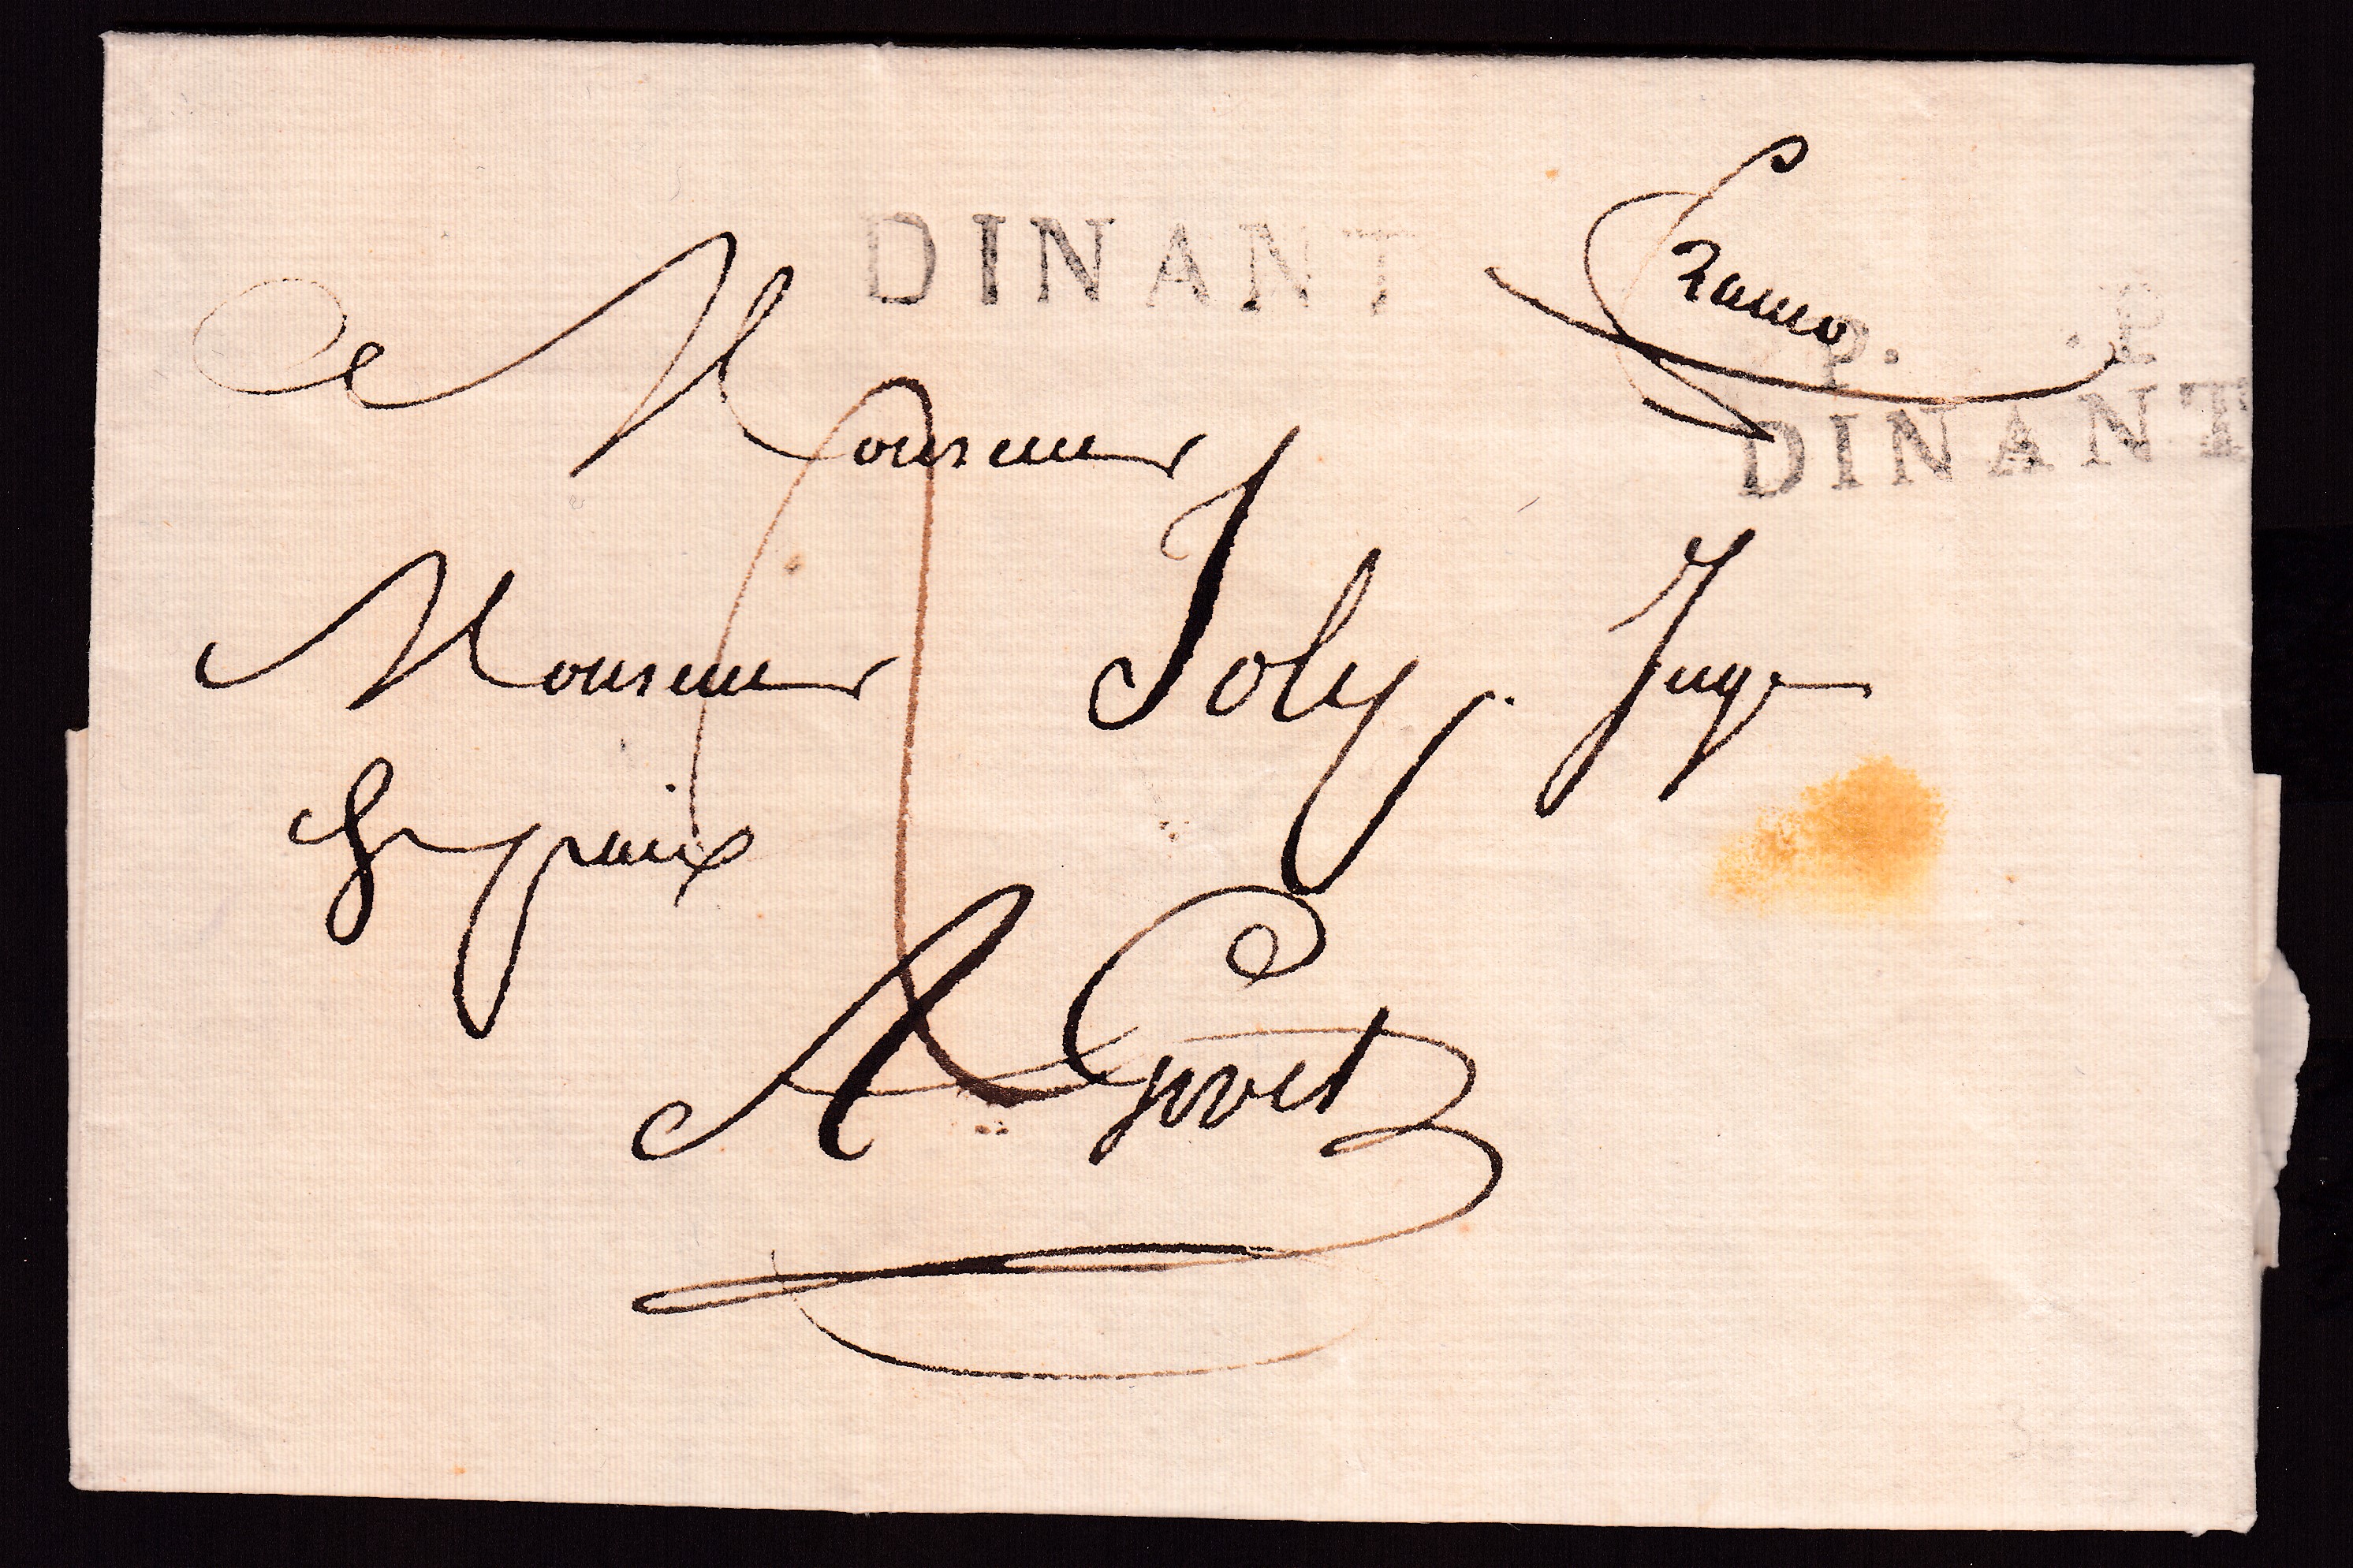 DINANT
franco
P. .P
DINANT
A Monsieur
Monsieur Joly. Juge
de paix
A Givet